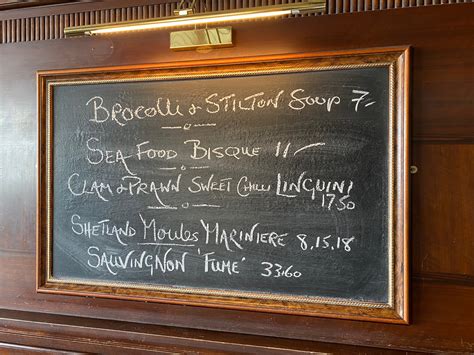 BROCOLLI & STILTON SOUP 7-
SEA FOOD BISQUE 11/-
CLAM & PRAWN SWEET CHILLI LINGUINI
1750
SHETLAND MOULES MARINIERE 8.15.18
SAUVINGNON 'FUME' 33.60